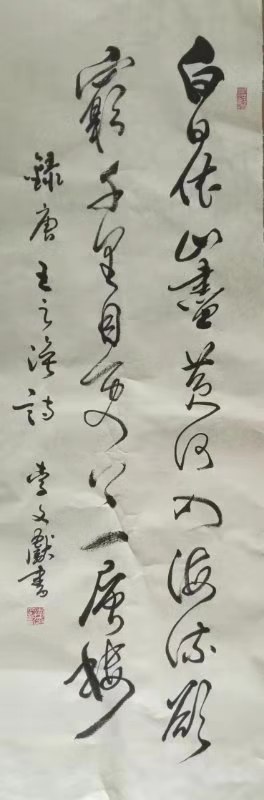 白日依山盡黃河入海流欲
窮千里目更上一層樓
錄唐王之渙詩 李文獻書